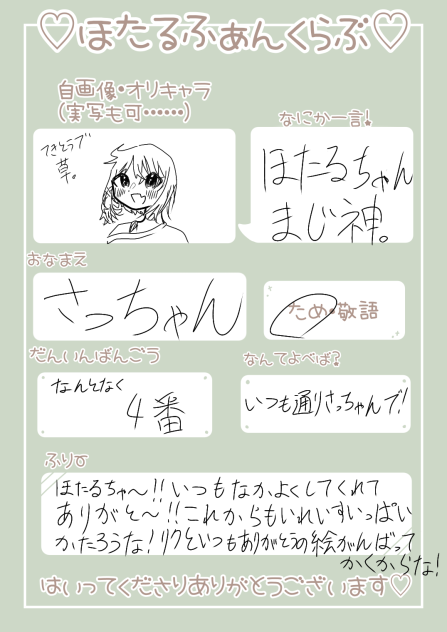 ♡ほたるふぁんくらぶ♡
自画像・オリキャラ
(実写も可……)
てきとうブ
草。
なにか一言!
ほたるちゃん
まじ神。
おなまえ
さっちゃん
ため・敬語
だんいんばんごう
なんとなく
4番
なんてよべば?
いつも通りさっちゃんで!
ふりー
ほたるちゃ〜!!いつもなかよくしてくれて
ありがと〜!!これからもいれいすいっぱい
かたろうな!リクといつもありがとうの絵がんばって
かくからな!
はいってくださりありがとうございます♡